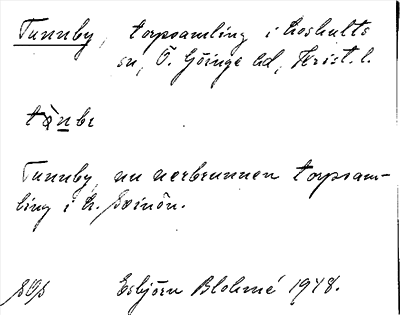 Tunnby, torpsamling i Loshults
sn, Ö. Göinge hd, Krist. l.
tønbı
Tunnby, nu nerbrunnen torpsam-
ling i L. 
SOS Esbjörn Blohmé 1948.